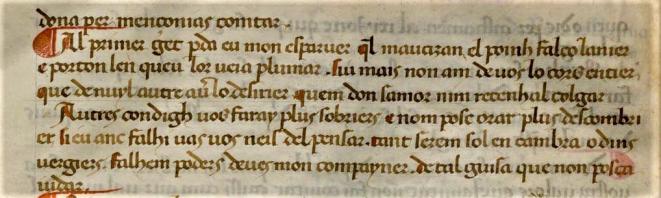 dona per menconias comtar .
Al primer get pda eu mon esparuer ql mauciran el poinh falco lanier
e porton len queu lor ueia plumar . siu mais non am de uos lo cors entier
que de nuyl autre au lo desirier quem don samor nim retenhal colgar
Autres condigh uos faray plus sobriers e nom pose orar plus descombri
er si eu anc falhi uas uos neis del pensar . tant serem sol en cambra o dins
uergiers . falhem poders deues mon compayner . de tal guisa que non posca
uidar .